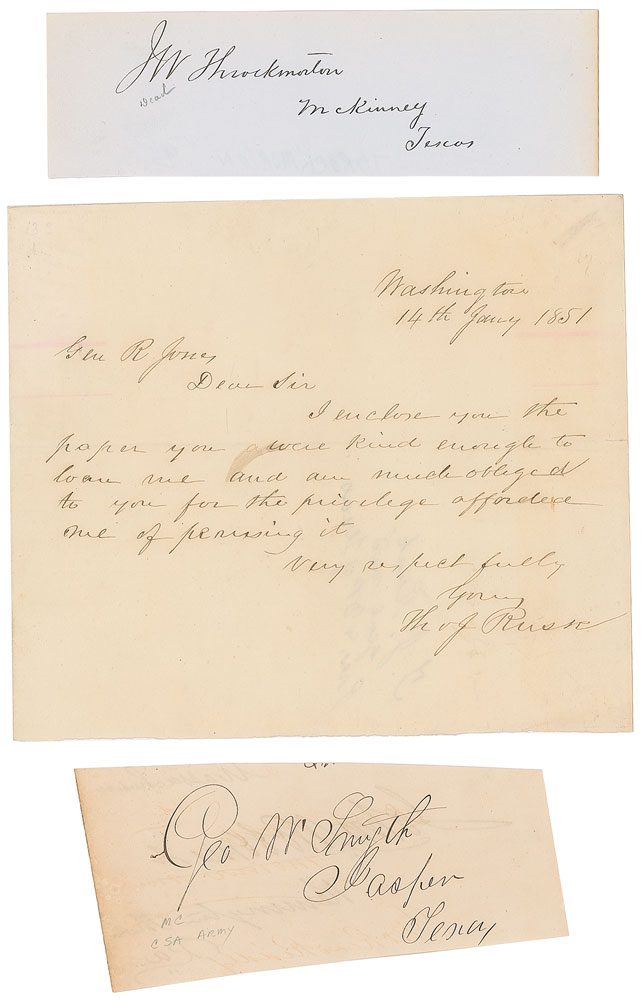 JW Throckmorton
Dead
McKinney
Texas
Washington
14th Jany 1851
Gen R Jones
Dear Sir
I enclose you the
paper you were kind enough to
loan me and am much obliged
to you for the privilege afforded
me of perusing it
Very respectfully
Yours
Tho J Rusk
Geo W Smyth
Jasper
Texas
MC
CSA ARMY